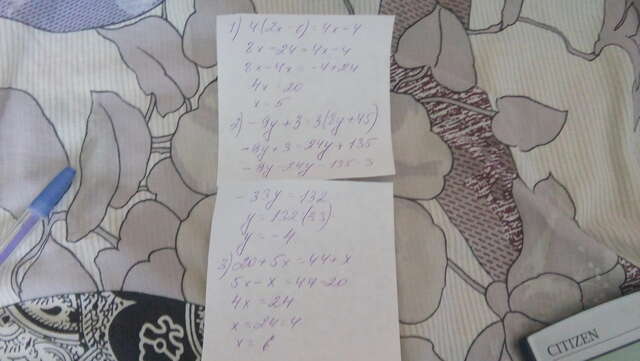 1) 4(2x-6)=4x-4
8x-24=4x-4
8x-4x=-4+24
4x=20
x=5
2) -9y+3=3(8y+45)
-9y+3=24y+135
-9y-24y=135-3
-33y=132
y=132:(33)
y=-4
3) 20+5x=44+x
5x-x=44-20
4x=24
x=24:4
x=6
CITIZEN